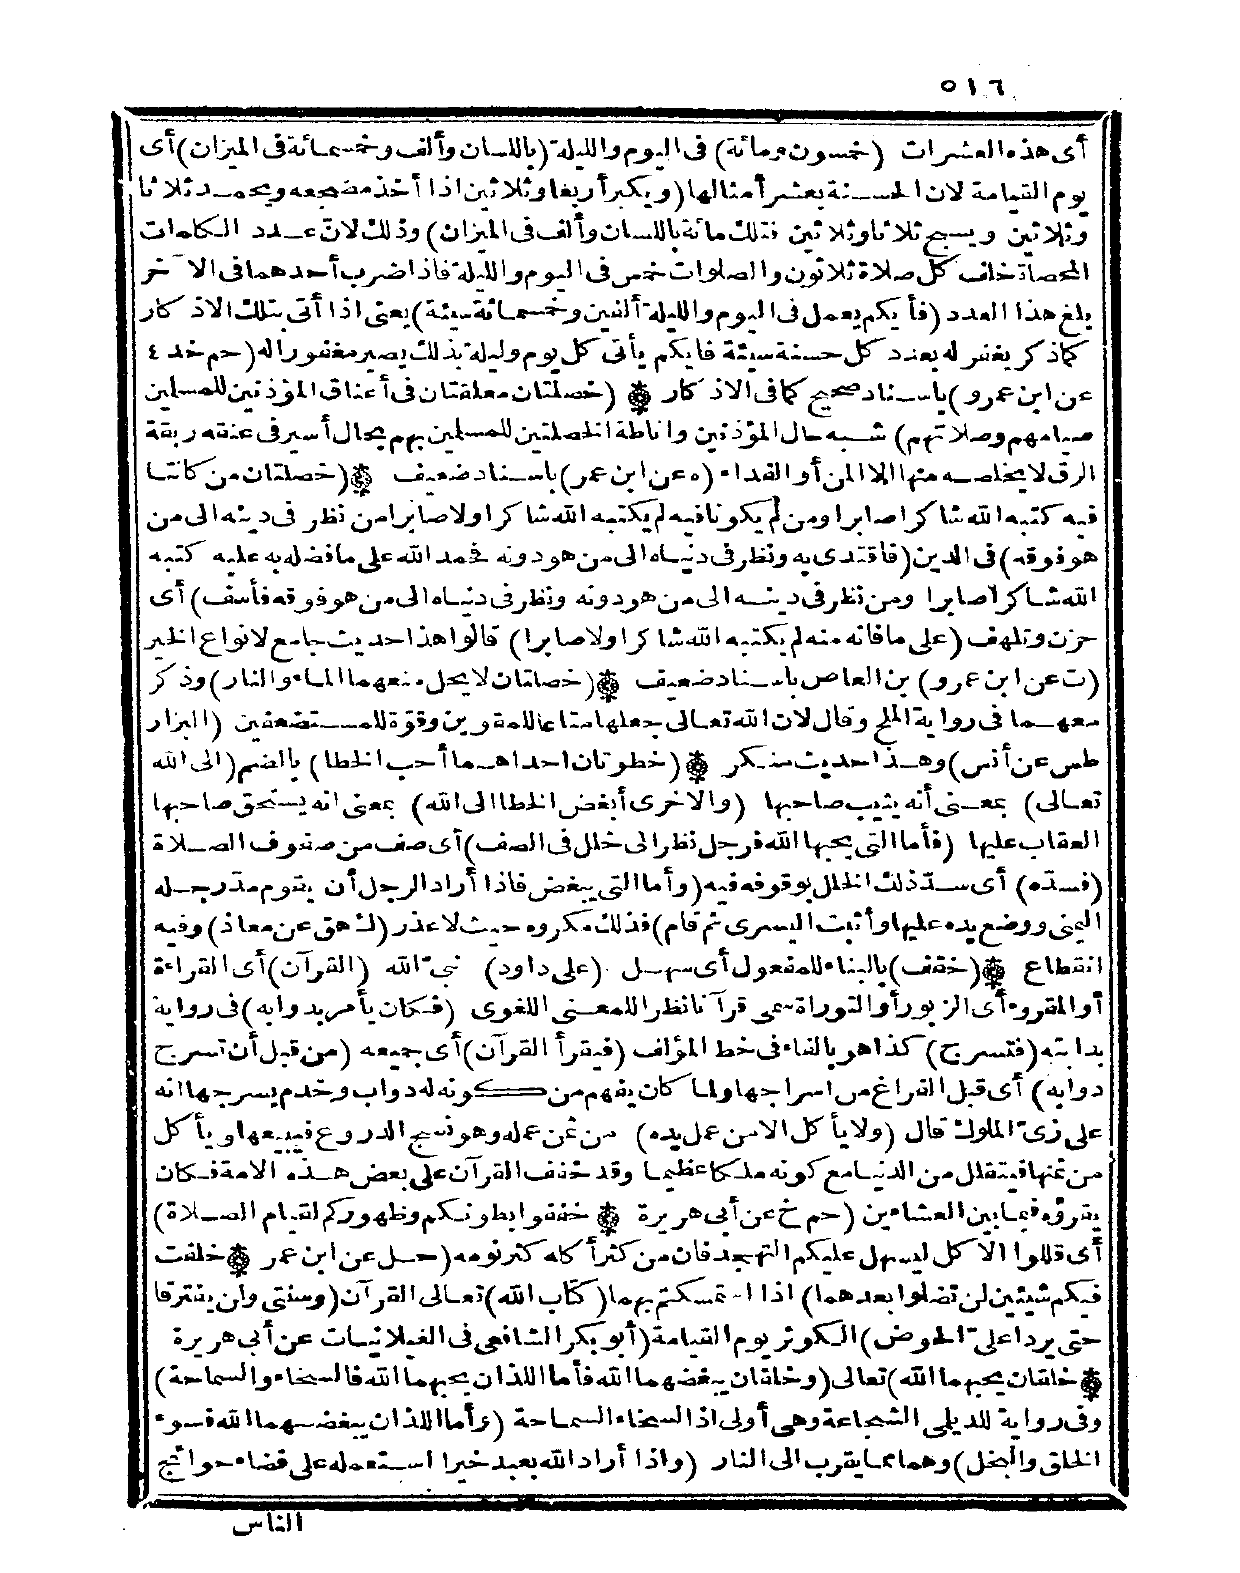 ٥١٦
أى هذه العشرات (خمسون ومائة) فى اليوم والليلة (باللسان وألف وخمسمائة فى الميزان) أى
يوم القيامة لان الحسنة بعشر أمثالها (ويكبر أربعا وثلاثين اذا أخذ مضجعه ويحمد ثلاثا
وثلاثين ويسبح ثلاثا وثلاثين فتلك مائة باللسان وألف فى الميزان) وذلك لان عدد الكلمات
المحصاة خلف كل صلاة ثلاثون والصلوات خمس فى اليوم والليلة فاذا ضرب أحدهما فى الآخر
بلغ هذا العدد (فأيكم يعمل فى اليوم والليلة ألفين وخمسمائة سيئة) يعنى اذا أتى بتلك الاذكار
كما ذكر يغفر له بعدد كل حسنة سيئة فايكم يأتى كل يوم وليلة بذلك يصير مغفورا له (حم خد ٤
عن ابن عمرو) باسناد صحيح كما فى الاذكار ۞ (خصلتان معلقتان فى أعناق المؤذنين للمسلمين
صيامهم وصلاتهم) شبه حال المؤذنين واناطة الخصلتين للمسلمين بهم بحال أسير فى عنقه ربقة
الرق لا يخلصه منها الا المن أو الفداء (ه عن ابن عمر) باسناد ضعيف ۞ (خصلتان من كانتا
فيه كتبه الله شاكرا صابرا ومن لم يكونا فيه لم يكتبه الله شاكرا ولا صابرا من نظر فى دينه الى من
هو فوقه) فى الدين (فاقتدى به ونظر فى دنياه الى من هو دونه فحمد الله على ما فضله به عليه كتبه
الله شاكرا صابرا ومن نظر فى دينه الى من هو دونه ونظر فى دنياه الى من هو فوقه فأسف) أى
حزن وتلهف (على ما فاته منه لم يكتبه الله شاكرا ولا صابرا) قالوا هذا حديث جامع لانواع الخير
(ت عن ابن عمرو) بن العاص باسناد ضعيف ۞ (خصلتان لا يحل منعهما الماء والنار) وذكر
معهما فى رواية الملح وقال لان الله تعالى جعلها متاعا للمقوين وقوة للمستضعفين (البزار
طس عن أنس) وهذا حديث منكر ۞ (خطوتان احداهما أحب الخطا) بالضم (الى الله
تعالى) بمعنى أنه يثيب صاحبها (والاخرى أبغض الخطا الى الله) بمعنى انه يستحق صاحبها
العقاب عليها (فأما التى يحبها الله فرجل نظر الى خلل فى الصف) أى صف من صفوف الصلاة
(فسده) أى سد ذلك الخلل بوقوفه فيه (وأما التى يبغض فاذا أراد الرجل أن يقوم مد رجله
اليمنى ووضع يده عليها وأثبت اليسرى ثم قام) فذلك مكروه حيث لا عذر (ك هق عن معاذ) وفيه
انقطاع ۞ (خفف) بالبناء للمفعول أى سهل (على داود) نبى الله (القرآن) أى القراءة
أو المقروء أى الزبور أو التوراة سمى قرآنا نظرا للمعنى اللغوى (فكان يأمر بدوابه) فى رواية
بدابته (فتسرج) كذا هو بالفاء فى خط المؤلف (فيقرأ القرآن) أى جميعه (من قبل أن تسرج
دوابه) أى قبل الفراغ من اسراجها ولما كان يفهم من كونه له دواب وخدم يسرجها انه
على زى الملوك قال (ولا يأكل الا من عمل يده) من ثمن عمله وهو نسج الدروع فيبيعها ويأكل
من ثمنها فيتقلل من الدنيا مع كونه ملكا عظيما وقد خفف القرآن على بعض هذه الامة فكان
يقرؤه فيما بين العشاءين (حم خ عن أبى هريرة ۞ خففوا بطونكم وظهوركم لقيام الصلاة)
أى قللوا الاكل ليسهل عليكم التهجد فان من كثر أكله كثر نومه (حل عن ابن عمر ۞ خلفت
فيكم شيئين لن تضلوا بعدهما) اذا استمسكتم بهما (كتاب الله) تعالى القرآن (وسنتى ولن يفترقا
حتى يردا على الحوض) الكوثر يوم القيامة (أبو بكر الشافعى فى الغيلانيات عن أبى هريرة
۞ خلقان يحبهما الله) تعالى (وخلقان يبغضهما الله فأما اللذان يحبهما الله فالسخاء والسماحة)
وفى رواية للديلى الشجاعة وهى أولى اذ السخاء السماحة (وأما اللذان يبغضهما الله فسوء
الخلق والبخل) وهما مما يقرب الى النار (واذا أراد الله بعبد خيرا استعمله على قضاء حوائج
الناس